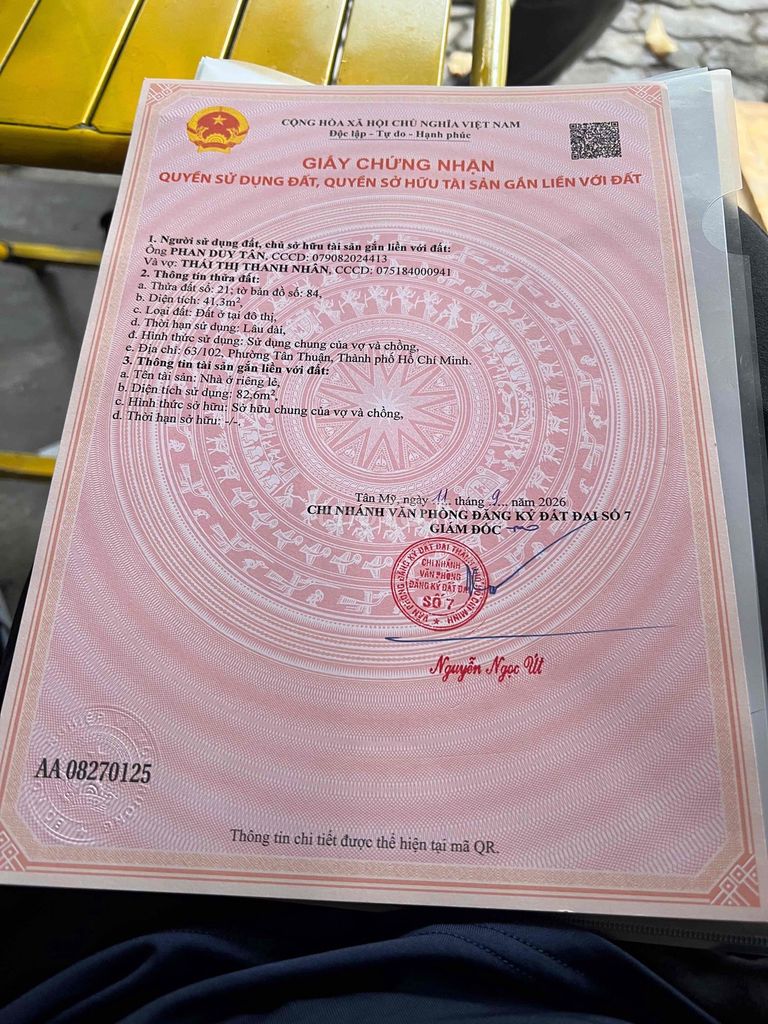 CỘNG HÒA XÃ HỘI CHỦ NGHĨA VIỆT NAM
Độc lập - Tự do - Hạnh phúc
GIẤY CHỨNG NHẬN
QUYỀN SỬ DỤNG ĐẤT, QUYỀN SỞ HỮU TÀI SẢN GẮN LIỀN VỚI ĐẤT
1. Người sử dụng đất, chủ sở hữu tài sản gắn liền với đất:
Ông PHAN DUY TÂN, CCCD: 079082024413
Và vợ: THÁI THỊ THANH NHÂN, CCCD: 075184000941
2. Thông tin thửa đất:
a. Thửa đất số: 21; tờ bản đồ số: 84,
b. Diện tích: 41,3m²,
c. Loại đất: Đất ở tại đô thị,
d. Thời hạn sử dụng: Lâu dài,
đ. Hình thức sử dụng: Sử dụng chung của vợ và chồng,
e. Địa chỉ: 63/102, Phường Tân Thuận, Thành phố Hồ Chí Minh.
3. Thông tin tài sản gắn liền với đất:
a. Tên tài sản: Nhà ở riêng lẻ,
b. Diện tích sử dụng: 82,6m²,
c. Hình thức sở hữu: Sở hữu chung của vợ và chồng,
d. Thời hạn sở hữu: -/-.
Tân Mỹ, ngày 11 tháng 9 năm 2026
CHI NHÁNH VĂN PHÒNG ĐĂNG KÝ ĐẤT ĐAI SỐ 7
GIÁM ĐỐC
VĂN PHÒNG ĐĂNG KÝ ĐẤT ĐAI THÀNH PHỐ HỒ CHÍ MINH
CHI NHÁNH
VĂN PHÒNG
ĐĂNG KÝ ĐẤT ĐAI
SỐ 7
Nguyễn Ngọc Út
AA 08270125
Thông tin chi tiết được thể hiện tại mã QR.